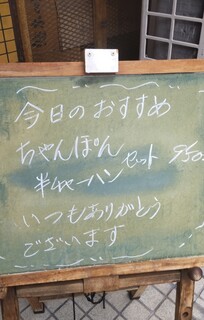 今日のおすすめ
ちゃんぽん
半チャーハン セット 950
いつもありがとう
ございます